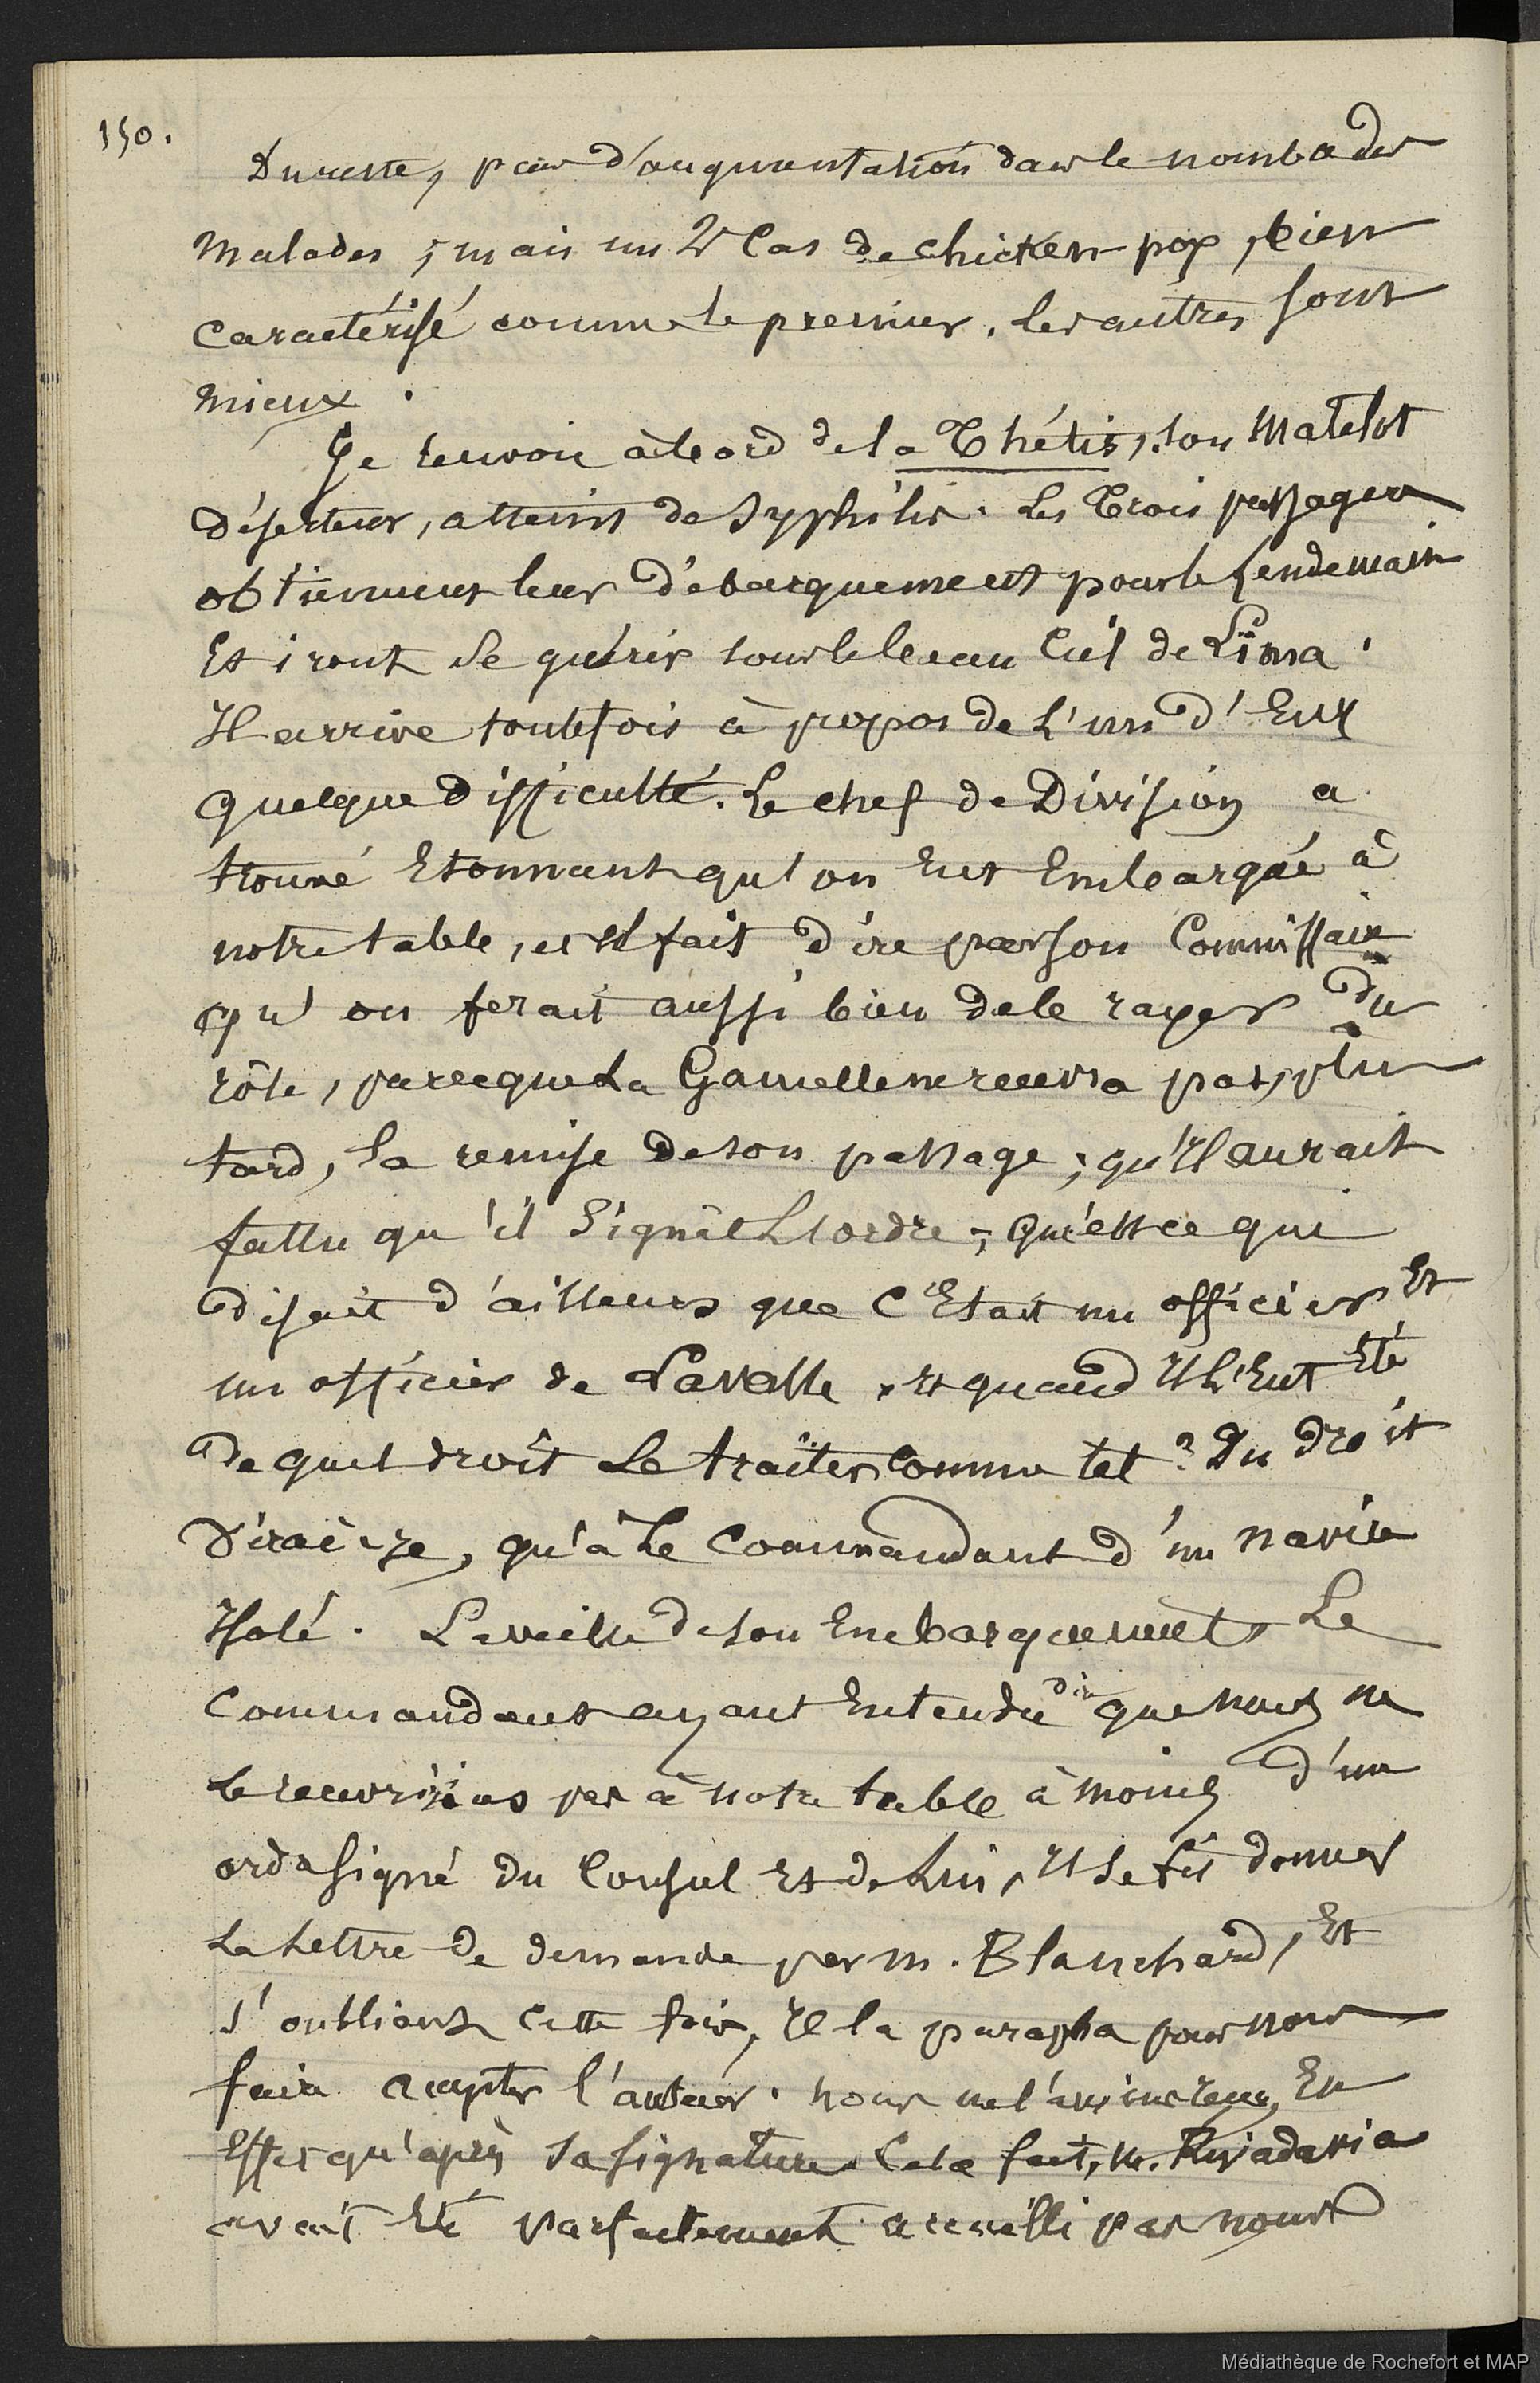 150.
Du reste, pas d'augmentation dans le nombre des
malades ; mais un 2e cas de chicken-pox, bien
caractérisé comme le premier. les autres sont
mieux.
Je renvoie à bord de la Thétis, son matelot
déserteur, atteint de syphilis. Les trois passagers
obtiennent leur débarquement pour le lendemain
Et iront se guérir sous le beau Ciel de Lima.
Il arrive toutefois à propos de L'un d'Eux
quelque difficulté. Le chef de Division a
trouvé Etonnant qu'on l'eut Embarqué à
notre table, et il fait dire par son Commissaire
qu'on ferait aussi bien de le rayer du
rôle, parceque La Gamelle ne recevra pas, plus
tard, la remise de son passage ; qu'il aurait
fallu qu'il signât L'ordre ; qu'est ce qui
disait d'ailleurs que C'Etait un officier Et
un officier de Lavalle. Et quand il l'Eut Eté
de quel droit Le traiter Comme tel ? Du droit
qu'a Le Commandant d'un navire
Isolé. La veille de son Embarquement, Le
Commandant ayant Entendu dire que nous ne
le recevrions pas à notre table à moins d'un
ordre signé du Consul Et de Lui, Il se fit donner
La Lettre de demande par m. Blanchard, Et
s'oubliant Cette fois, Il la parapha pour nous
faire accepter l'auteur. nous ne l'avions reçu, En
Effet qu'après sa signature. Cela fait, M. Rivadavia
avait Eté parfaitement accueilli par nous
Médiathèque de Rochefort et MAP